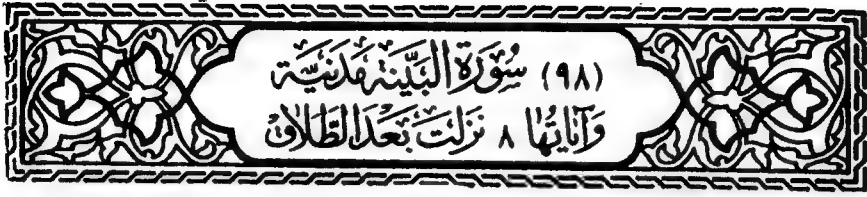 (٩٨) سُورَةِ البَيِّنَةِ مَدَنِيَّة
وَآيَاتُهَا ٨ نَزَلَتْ بَعْدَ الطَّلَاق